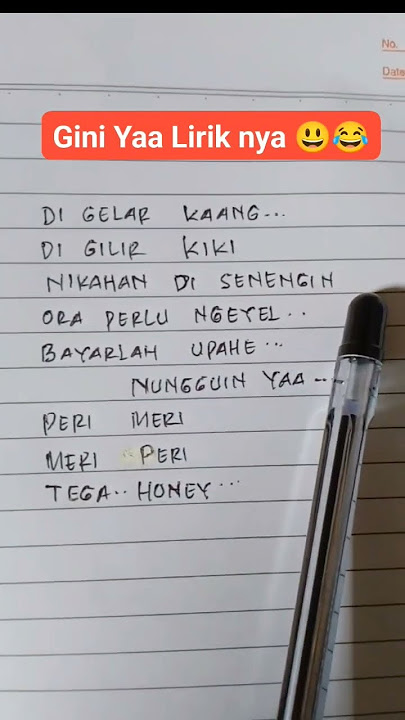 No.
Date
Gini Yaa Lirik nya 😃😂
DI GELAR KAANG...
DI GILIR KIKI
NIKAHAN DI SENENGIN
ORA PERLU NGEYEL..
BAYARLAH UPAHE...
NUNGGUIN YAA...
PERI MERI
MERI PERI
TEGA.. HONEY...